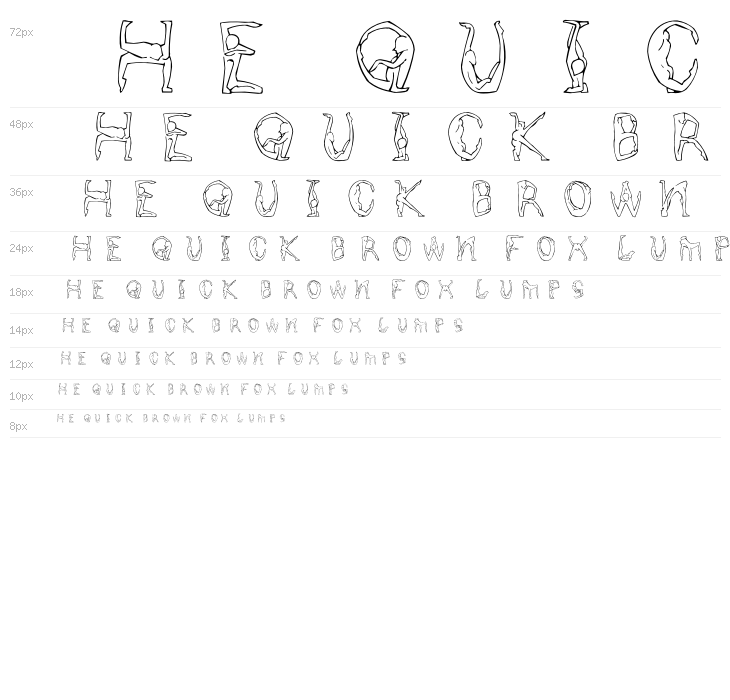 72px HE QUIC
48px HE QUICK BR
36px HE QUICK BROWN
24px HE QUICK BROWN FOX LUMP
18px HE QUICK BROWN FOX LUMPS
14px HE QUICK BROWN FOX LUMPS
12px HE QUICK BROWN FOX LUMPS
10px HE QUICK BROWN FOX LUMPS
8px HE QUICK BROWN FOX LUMPS